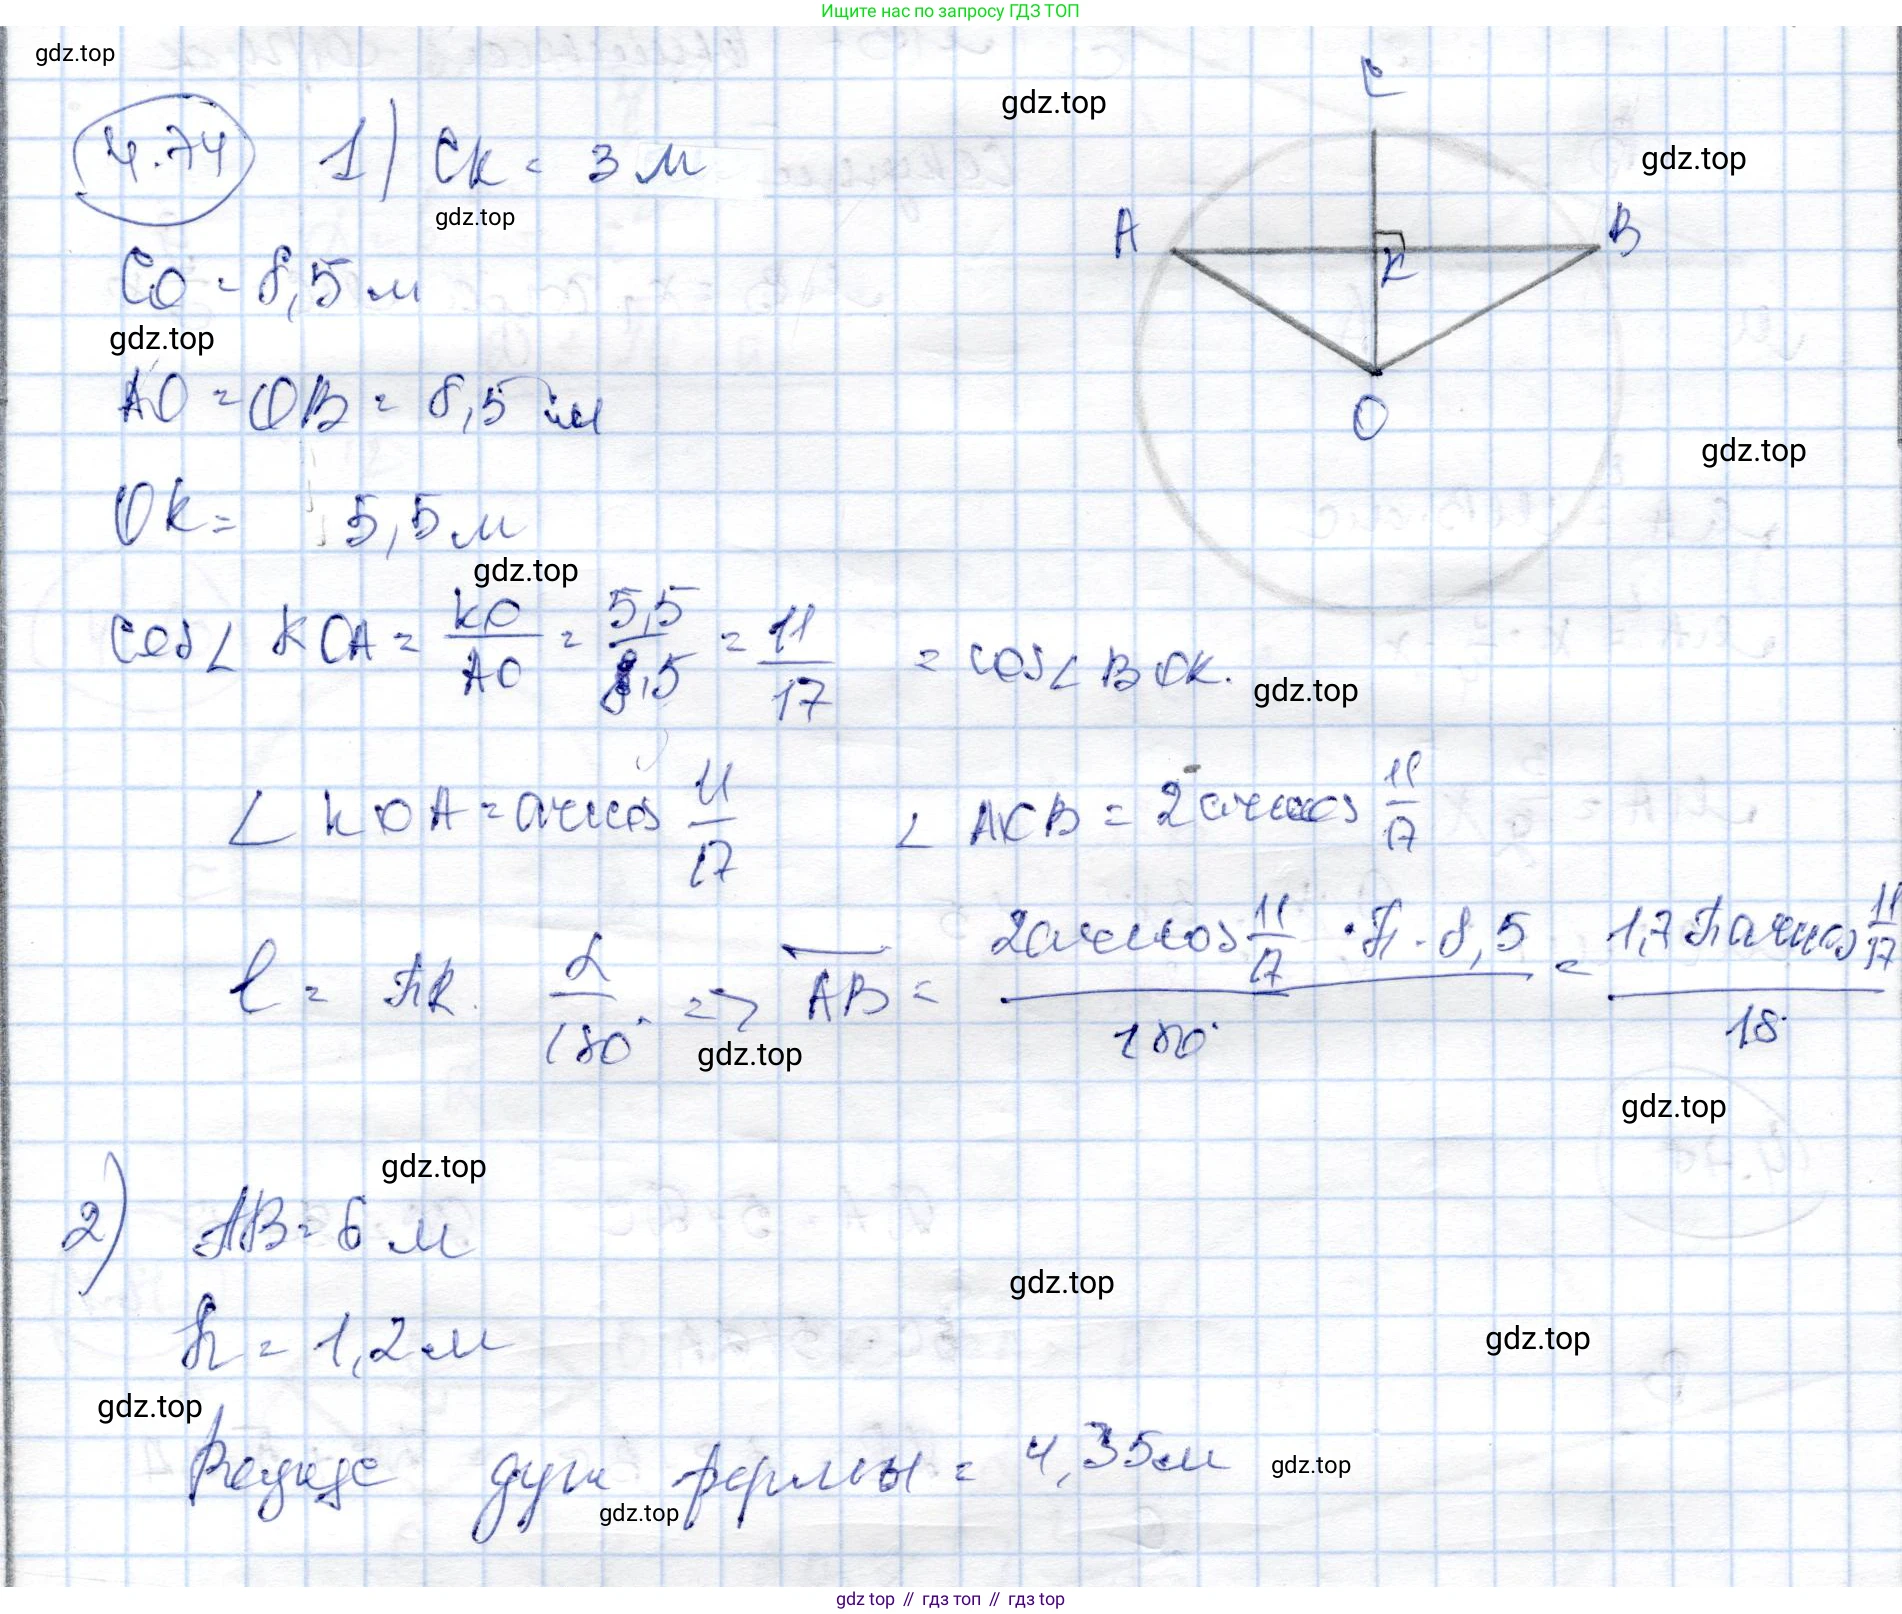 Ищите нас по запросу ГДЗ ТОП
gdz.top
gdz.top
C
4.74 1) CK = 3 м
gdz.top
gdz.top
A B
K
CO = 8,5 м
gdz.top
AO = OB = 8,5 м
O
gdz.top
OK = 5,5 м
gdz.top
cos∠ KOA = KO/AO = 5,5/8,5 = 11/17 = cos∠ BOK.
gdz.top
∠ KOA = arccos 11/17 ∠ AOB = 2 arccos 11/17
l = πR · α/180° => AB = 2arccos 11/17 · π · 8,5 / 180° = 1,7 π arccos 11/17 / 18°
gdz.top
gdz.top
gdz.top
2) AB = 6 м
gdz.top
h = 1,2 м
gdz.top
gdz.top
Радиус дуги фермы = 4,35 м
gdz.top
gdz.top
gdz top // гдз топ // гдз top